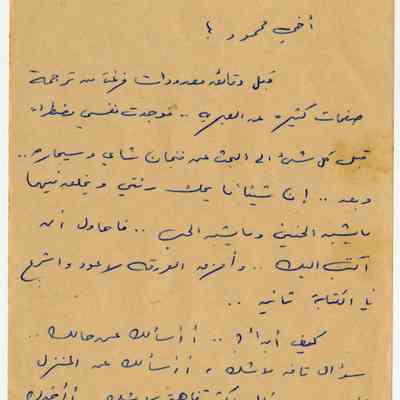 أخي محمود !
قبل دقائق معدودات فرغت من ترجمة
صفحات كثيرة عن العبرية .. فوجدت نفسي مضطراً
قبل كل شيء الى البحث عن فنجان شاي وسيجارة ..
وبعد .. إن شيئاً ما يحك رئتي ويخلق فيها
ما يشبه الحنين وما يشبه الحب .. فأحاول أن
أكتب اليك .. وأمزق الورقة لأعود واشجع
في الكتابة ثانية ..
كيف أبدأ ؟ .. أأسألك عن حالك ..
سؤال تافه لا شك ، أأسألك عن المنزل